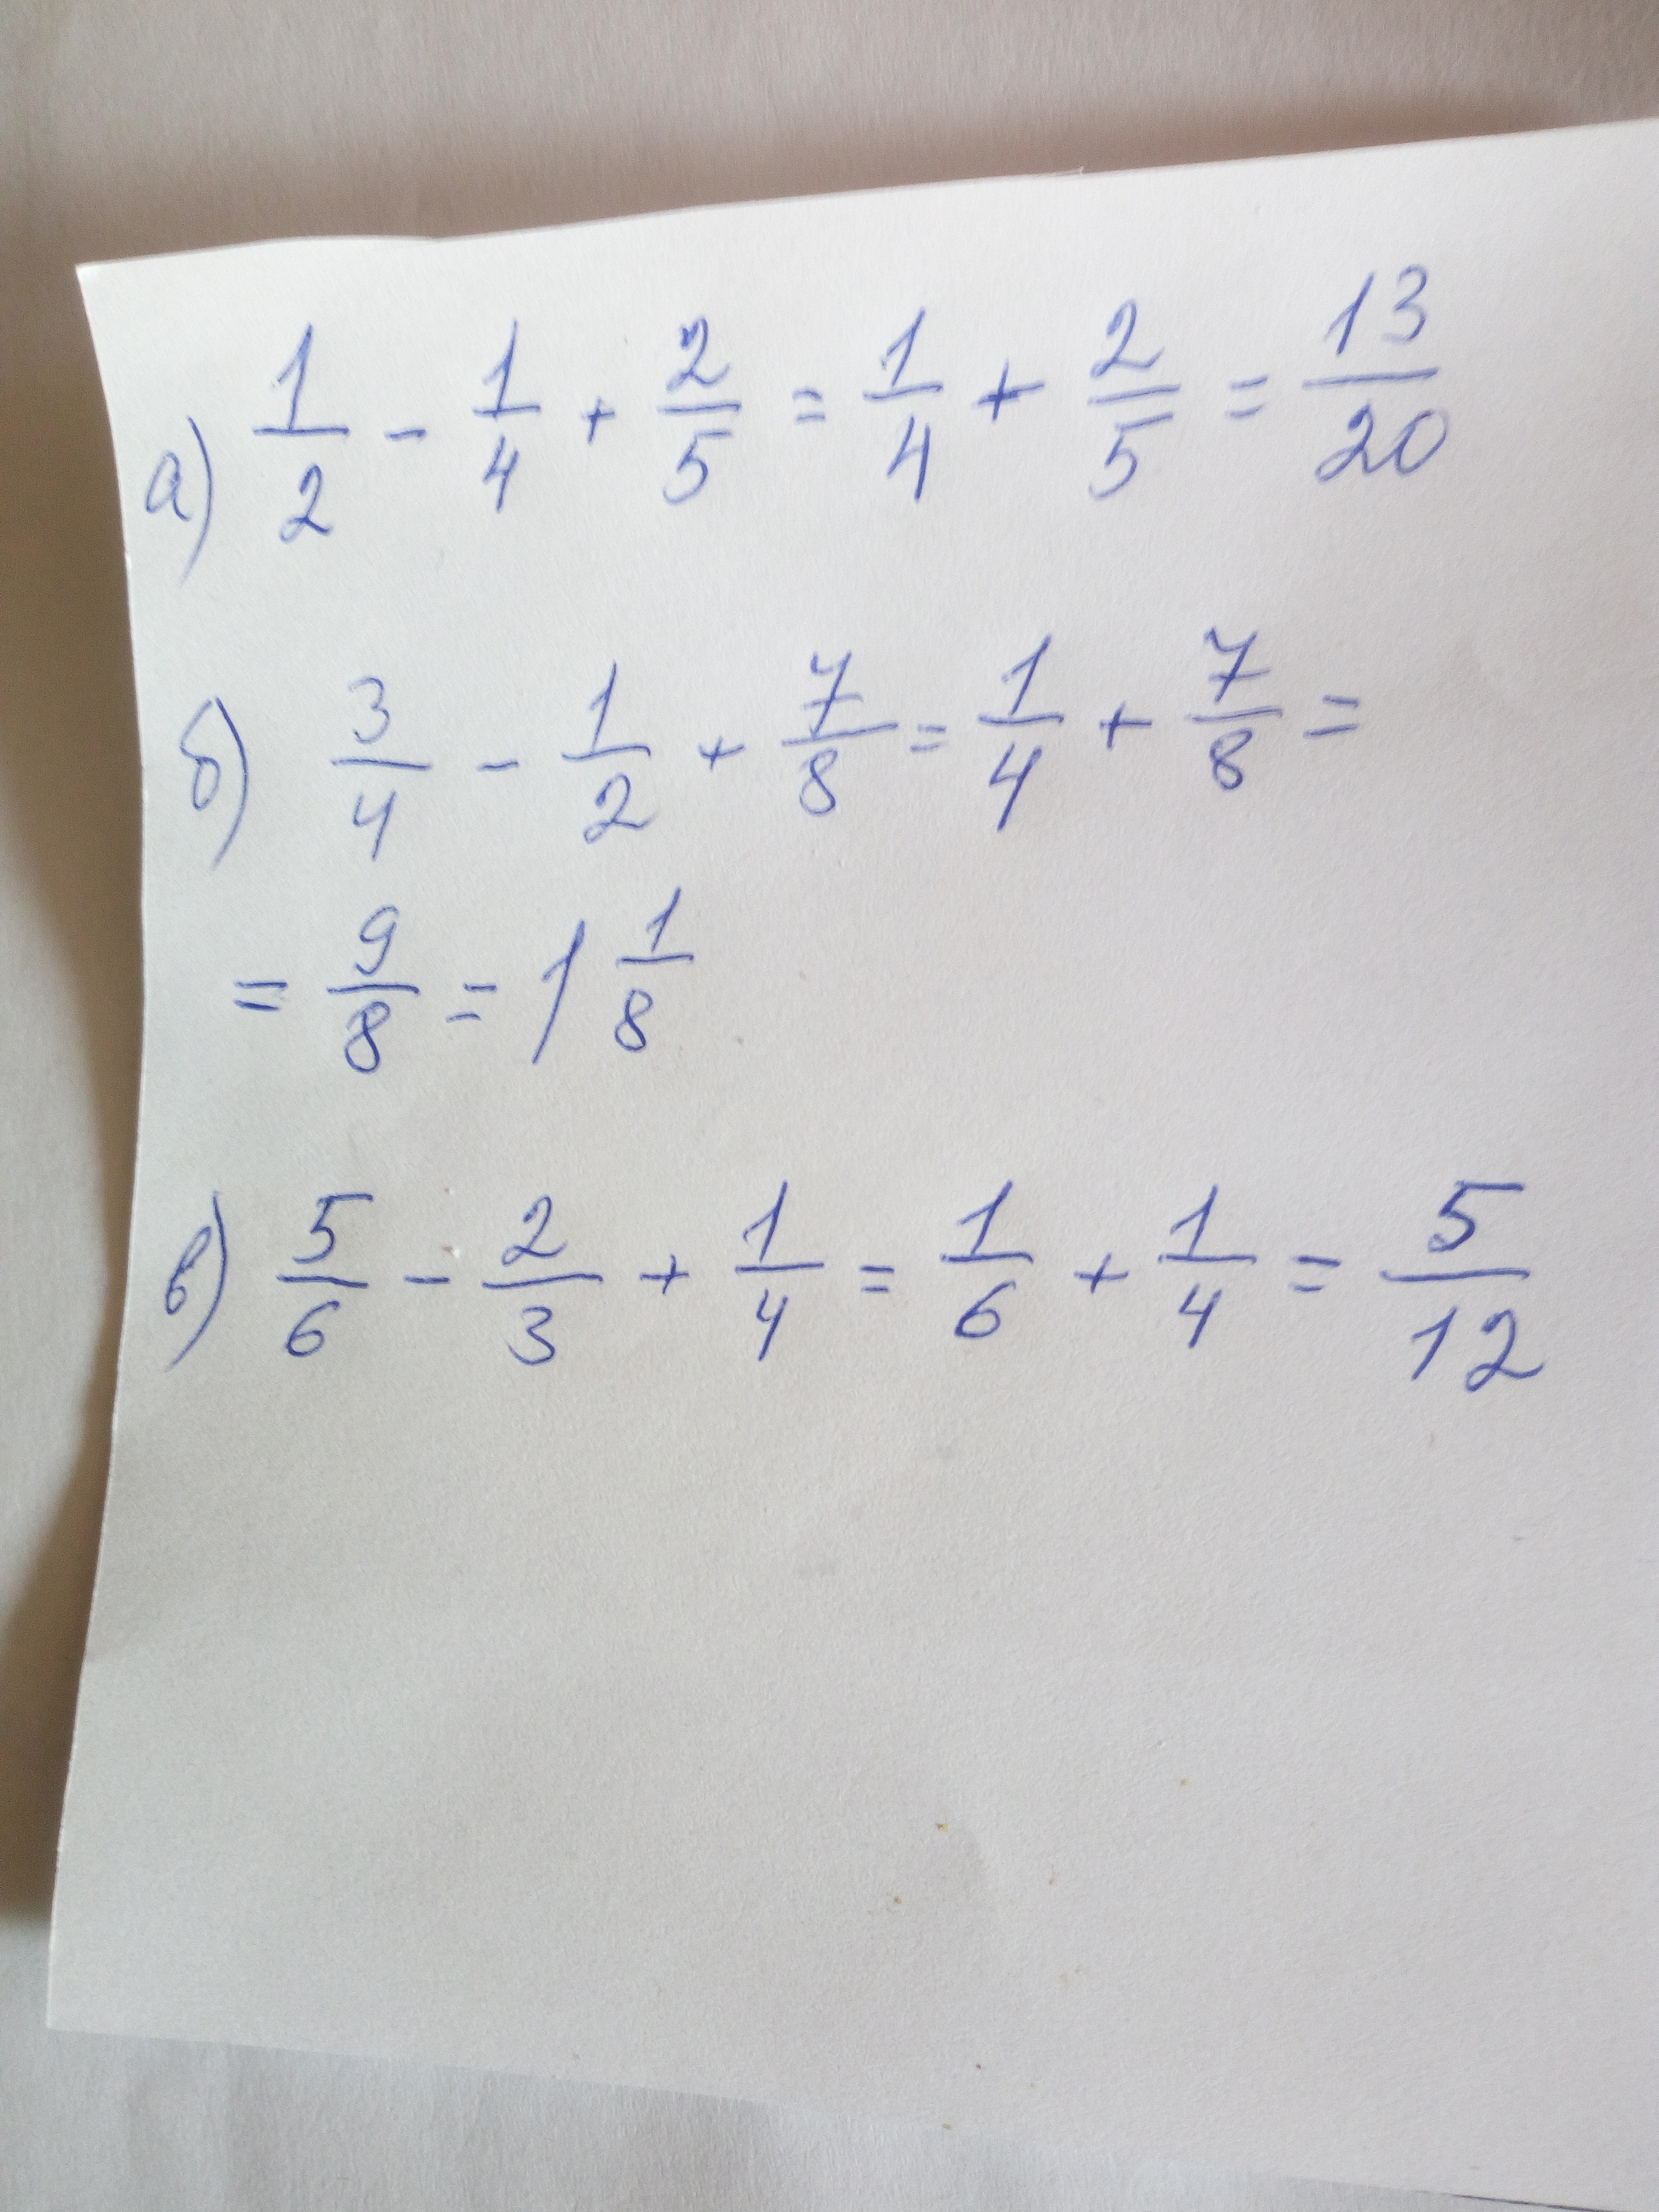 а) 1/2 - 1/4 + 2/5 = 1/4 + 2/5 = 13/20
б) 3/4 - 1/2 + 7/8 = 1/4 + 7/8 =
= 9/8 = 1 1/8
в) 5/6 - 2/3 + 1/4 = 1/6 + 1/4 = 5/12